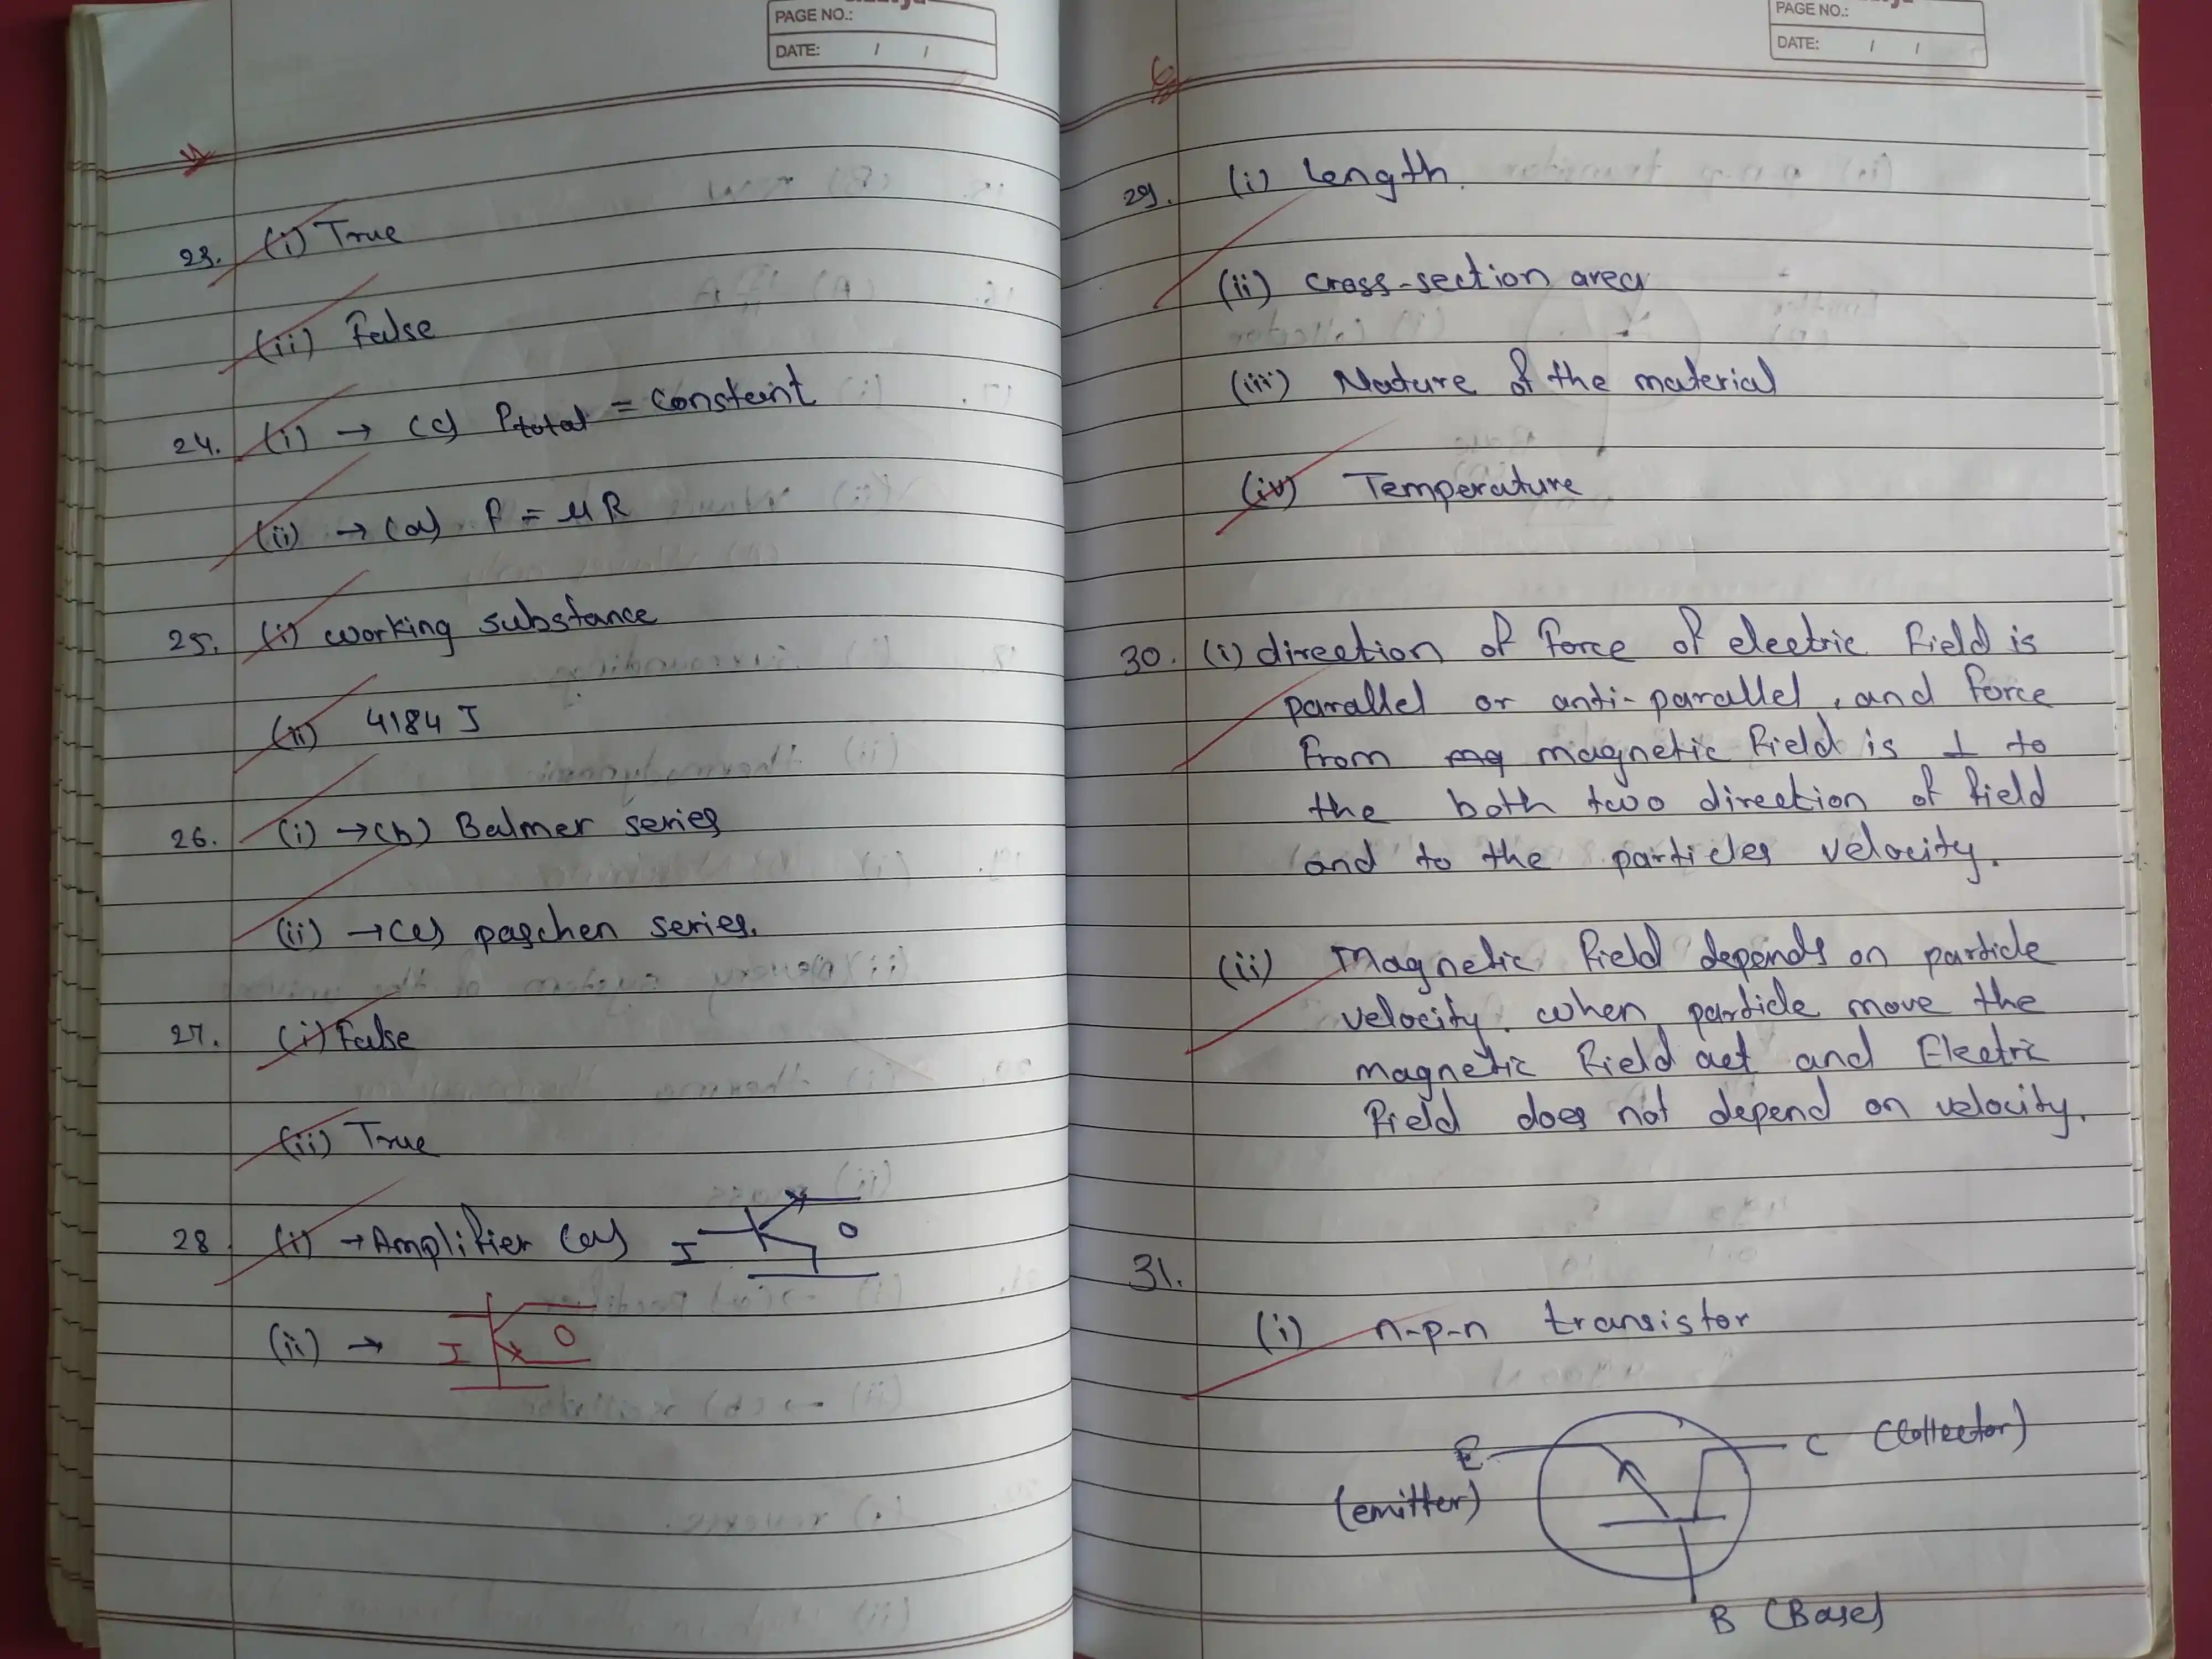 PAGE NO.:
DATE: / /
23. (i) True
(ii) False
24. (i) → (c) Ptotal = constant
(ii) → (a) f = μR
25. (i) working substance
(ii) 4184 J
26. (i) → (b) Balmer series
(ii) → (c) paschen series.
27. (i) False
(ii) True
28. (i) → Amplifier (a) I O
(ii) → I O
PAGE NO.:
DATE: / /
29. (i) Length.
(ii) cross-section area
(iii) Nature of the material
(iv) Temperature
30. (i) direction of force of electric field is
parallel or anti-parallel, and force
from magnetic field is ⊥ to
the both two direction of field
and to the particles velocity.
(ii) Magnetic field depends on particle
velocity. when particle move the
magnetic field act and Electric
field does not depend on velocity.
31.
(i) n-p-n transistor
E C (Collector)
(emitter)
B (Base)